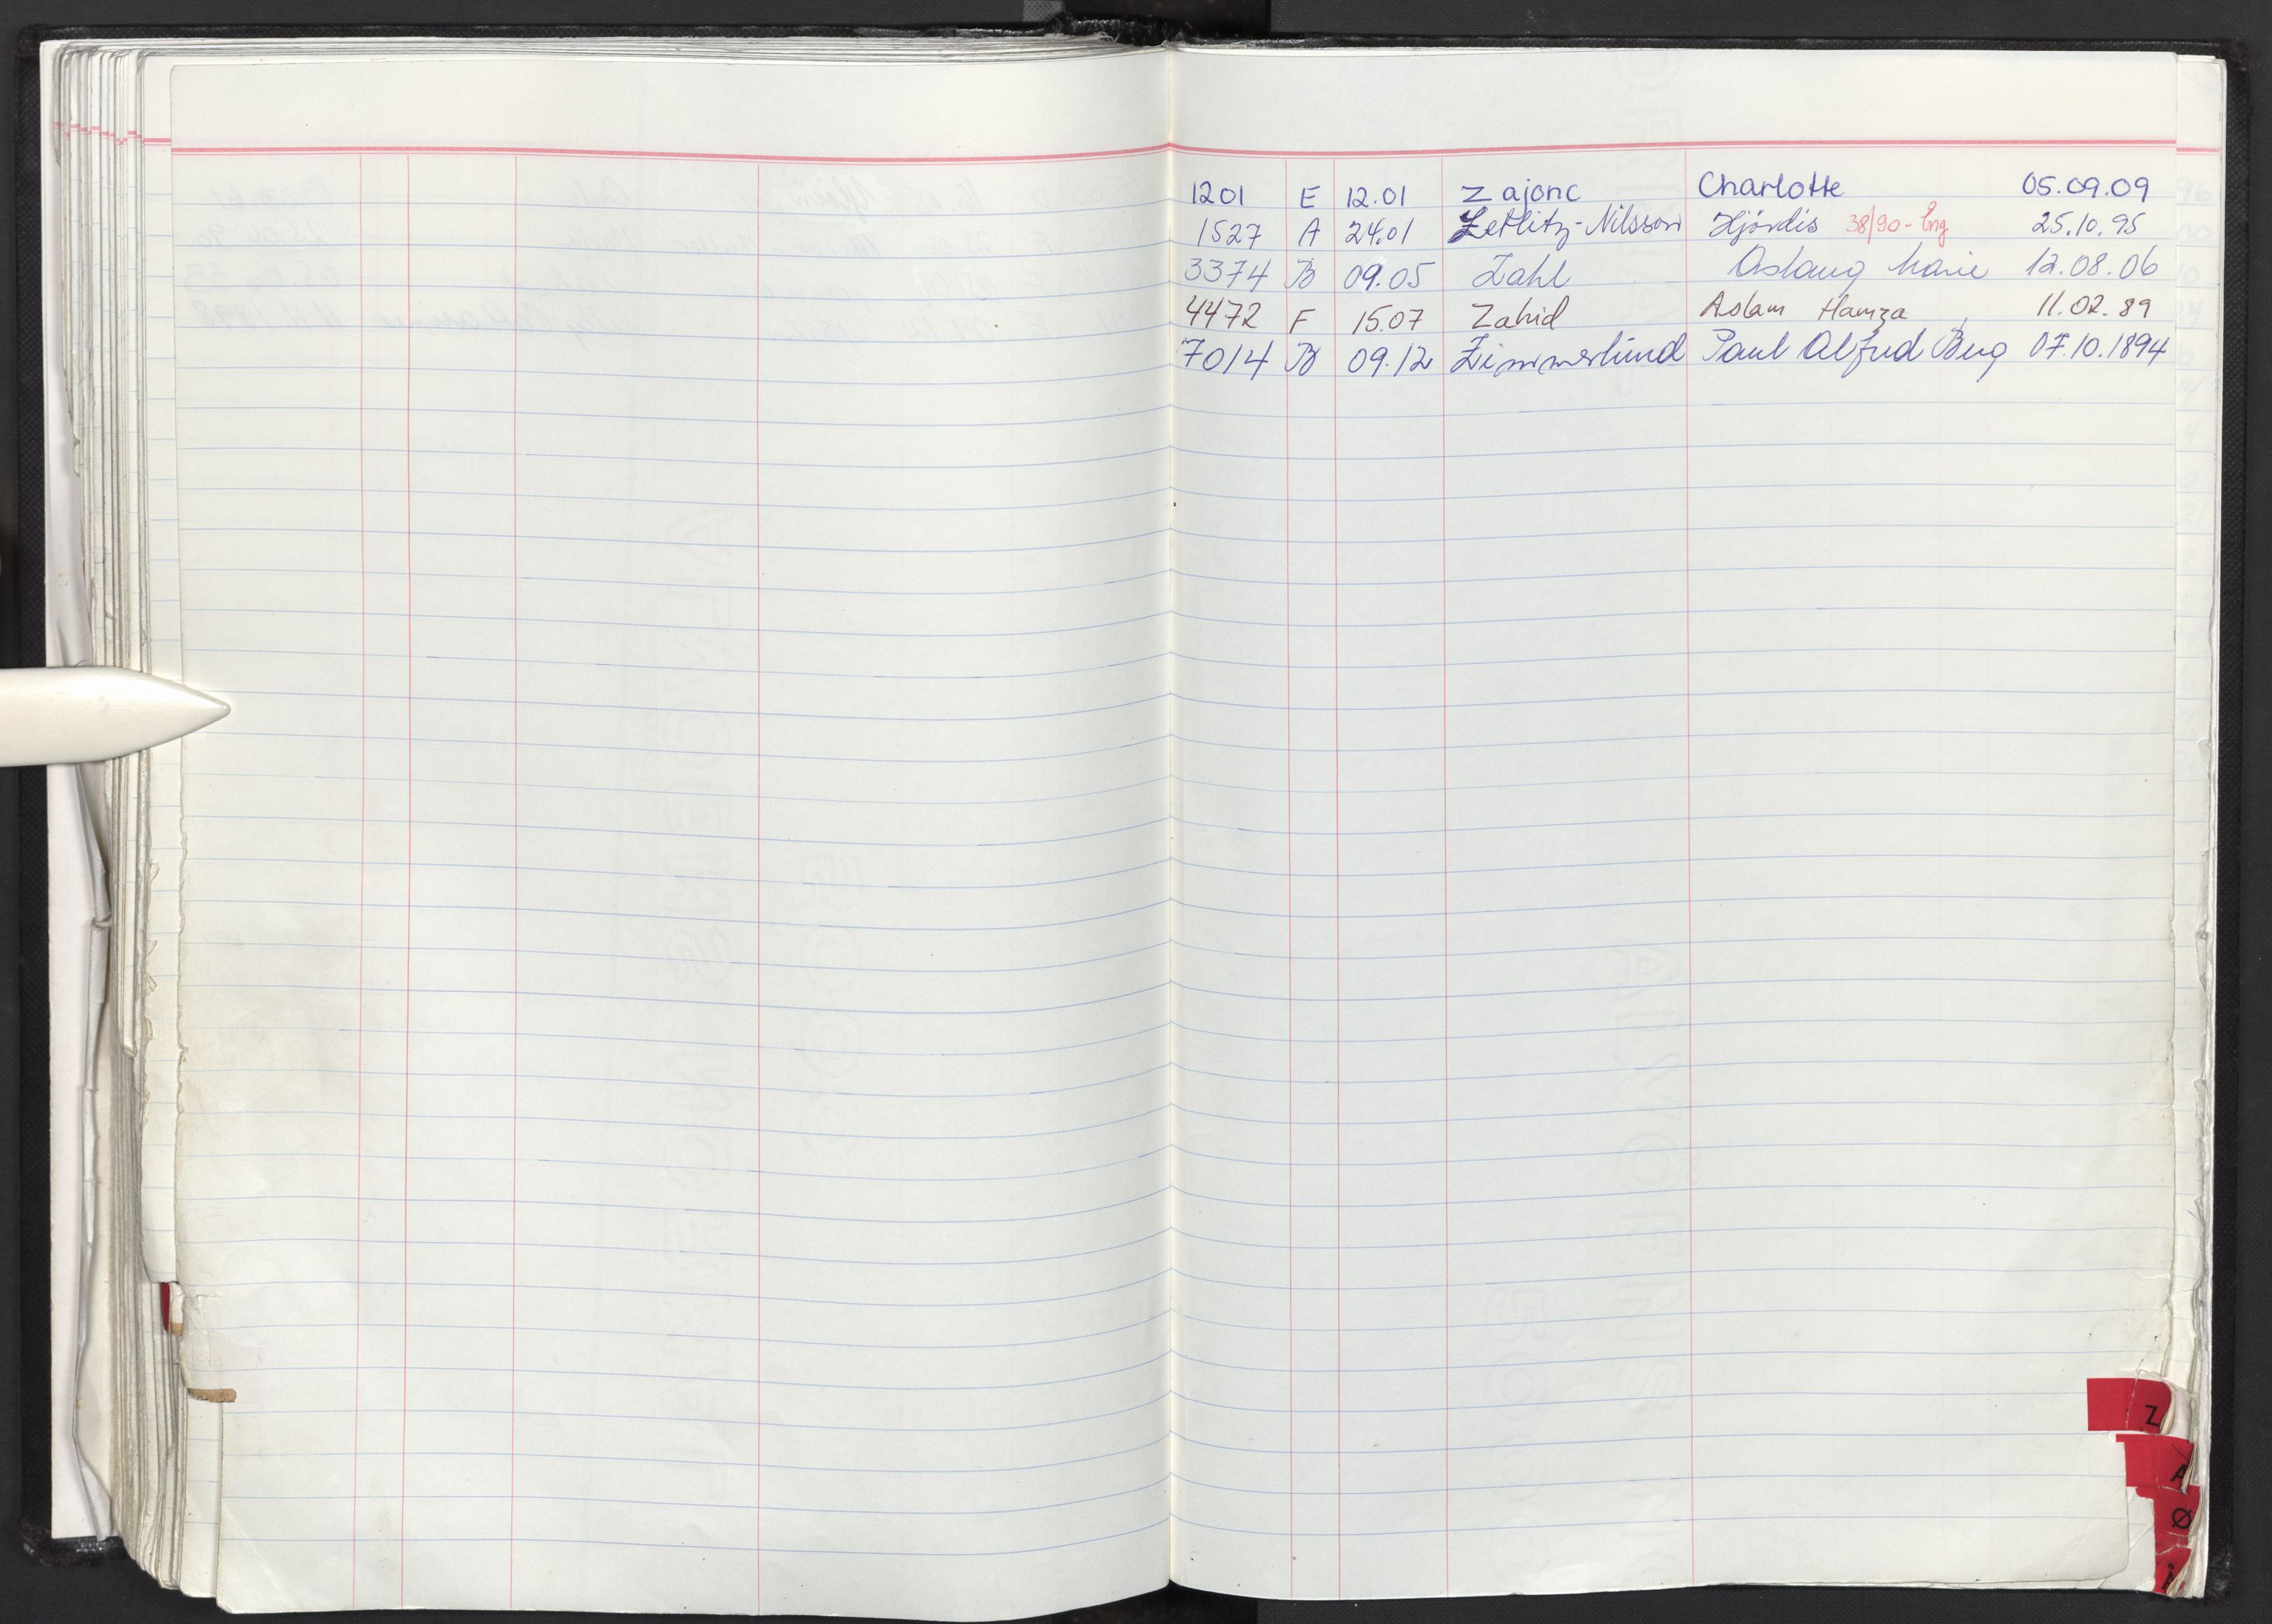 1201 E 12.01 Zajonc Charlotte 05.09.09
1527 A 24.01 Zetlitz-Nilsson Hjördis 38/90- 25.10.95
3374 B 09.05 Zahl Aslaug Marie 12.08.06
4472 F 15.07 Zahid Aslam Hamza 11.02.89
7014 B 09.12 Zimmerlund Paul Alfred Berg 07.10.1894
Z
Ø